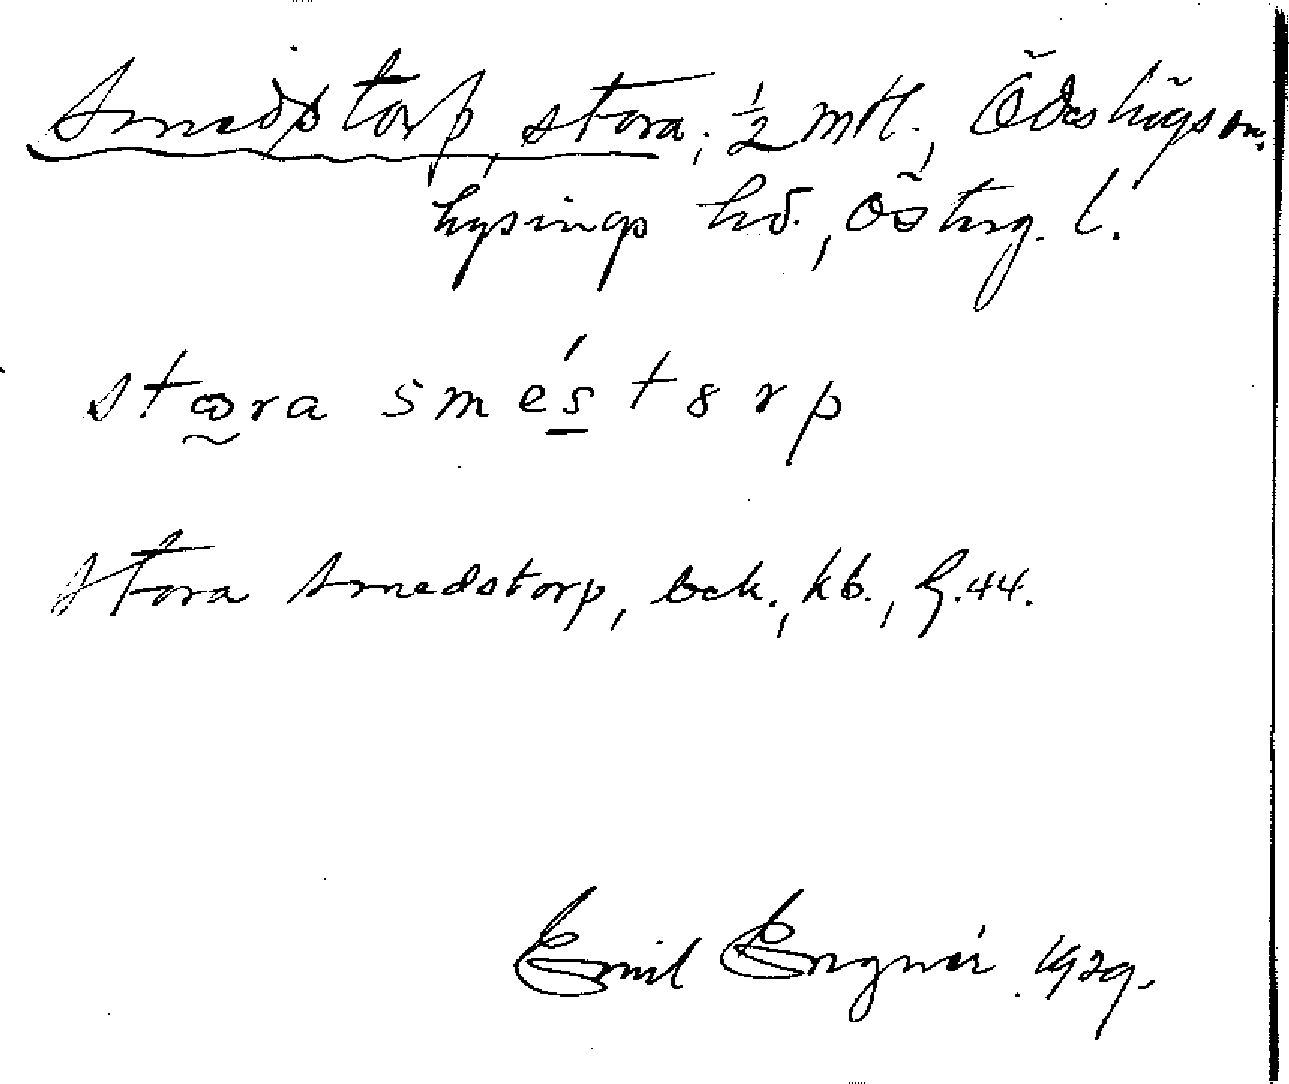 Smedstorp, stora; ½ mtl., Ödeshögs sn.
Lysings hd., Österg. l.
stɷra smés t8rp
Stora Smedstorp, bek., kb., G.44.
Emil Engnér. 1929.